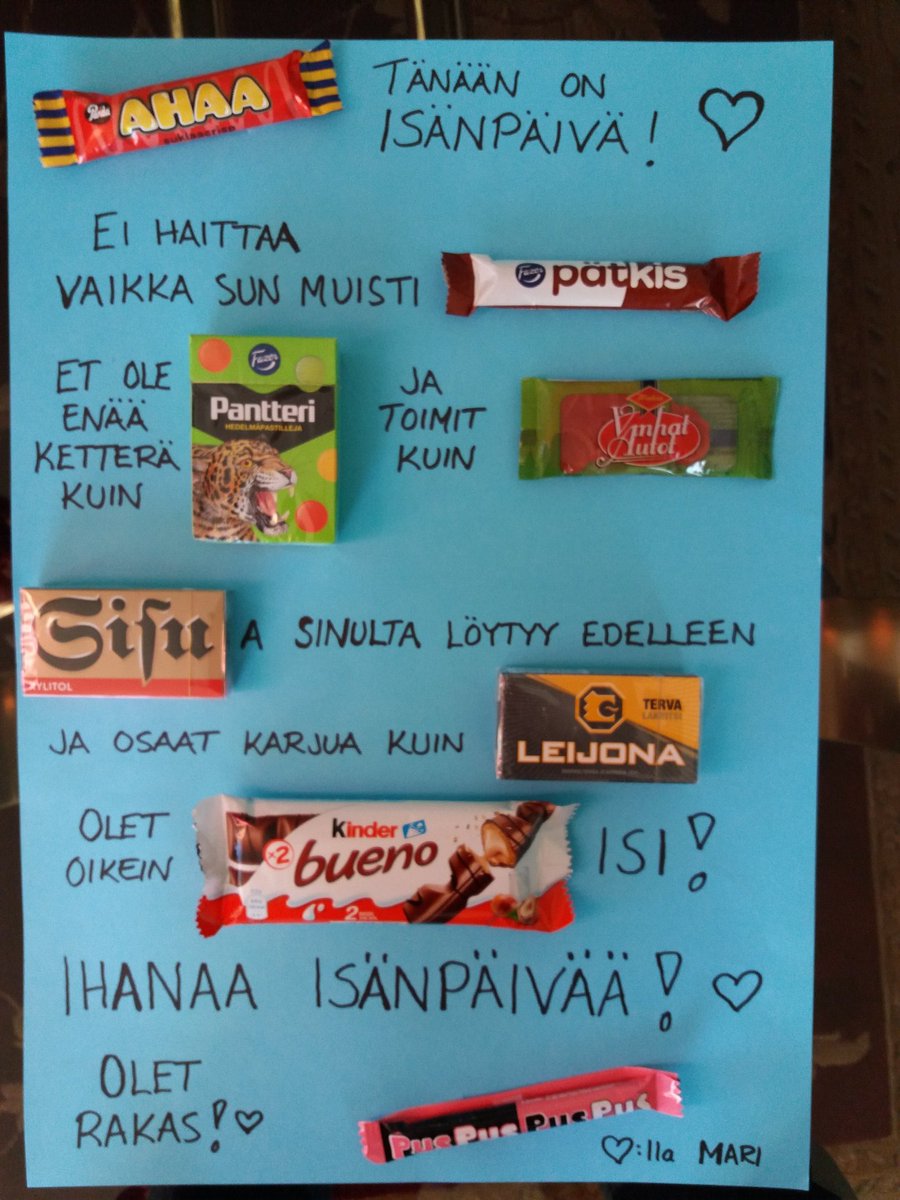 Panda AHAA TÄNÄÄN ON
suklaarieb ISÄNPÄIVÄ! ♡
EI HAITTAA
VAIKKA SUN MUISTI Fazer pätkis
ET OLE
ENÄÄ
KETTERÄ
KUIN
Fazer
Pantteri
HEDELMÄPASTILLEJA
JA
TOIMIT
KUIN
Vanhat
Autot
Sisu A SINULTA LÖYTYY EDELLEEN
XYLITOL
JA OSAAT KARJUA KUIN
TERVA
LAKRITSI
LEIJONA
OLET
OIKEIN
kinder
x2 bueno
2
ISI!
IHANAA ISÄNPÄIVÄÄ! ♡
OLET
RAKAS! ♡
PUS PUS PUS PUS
♡:lla MARI